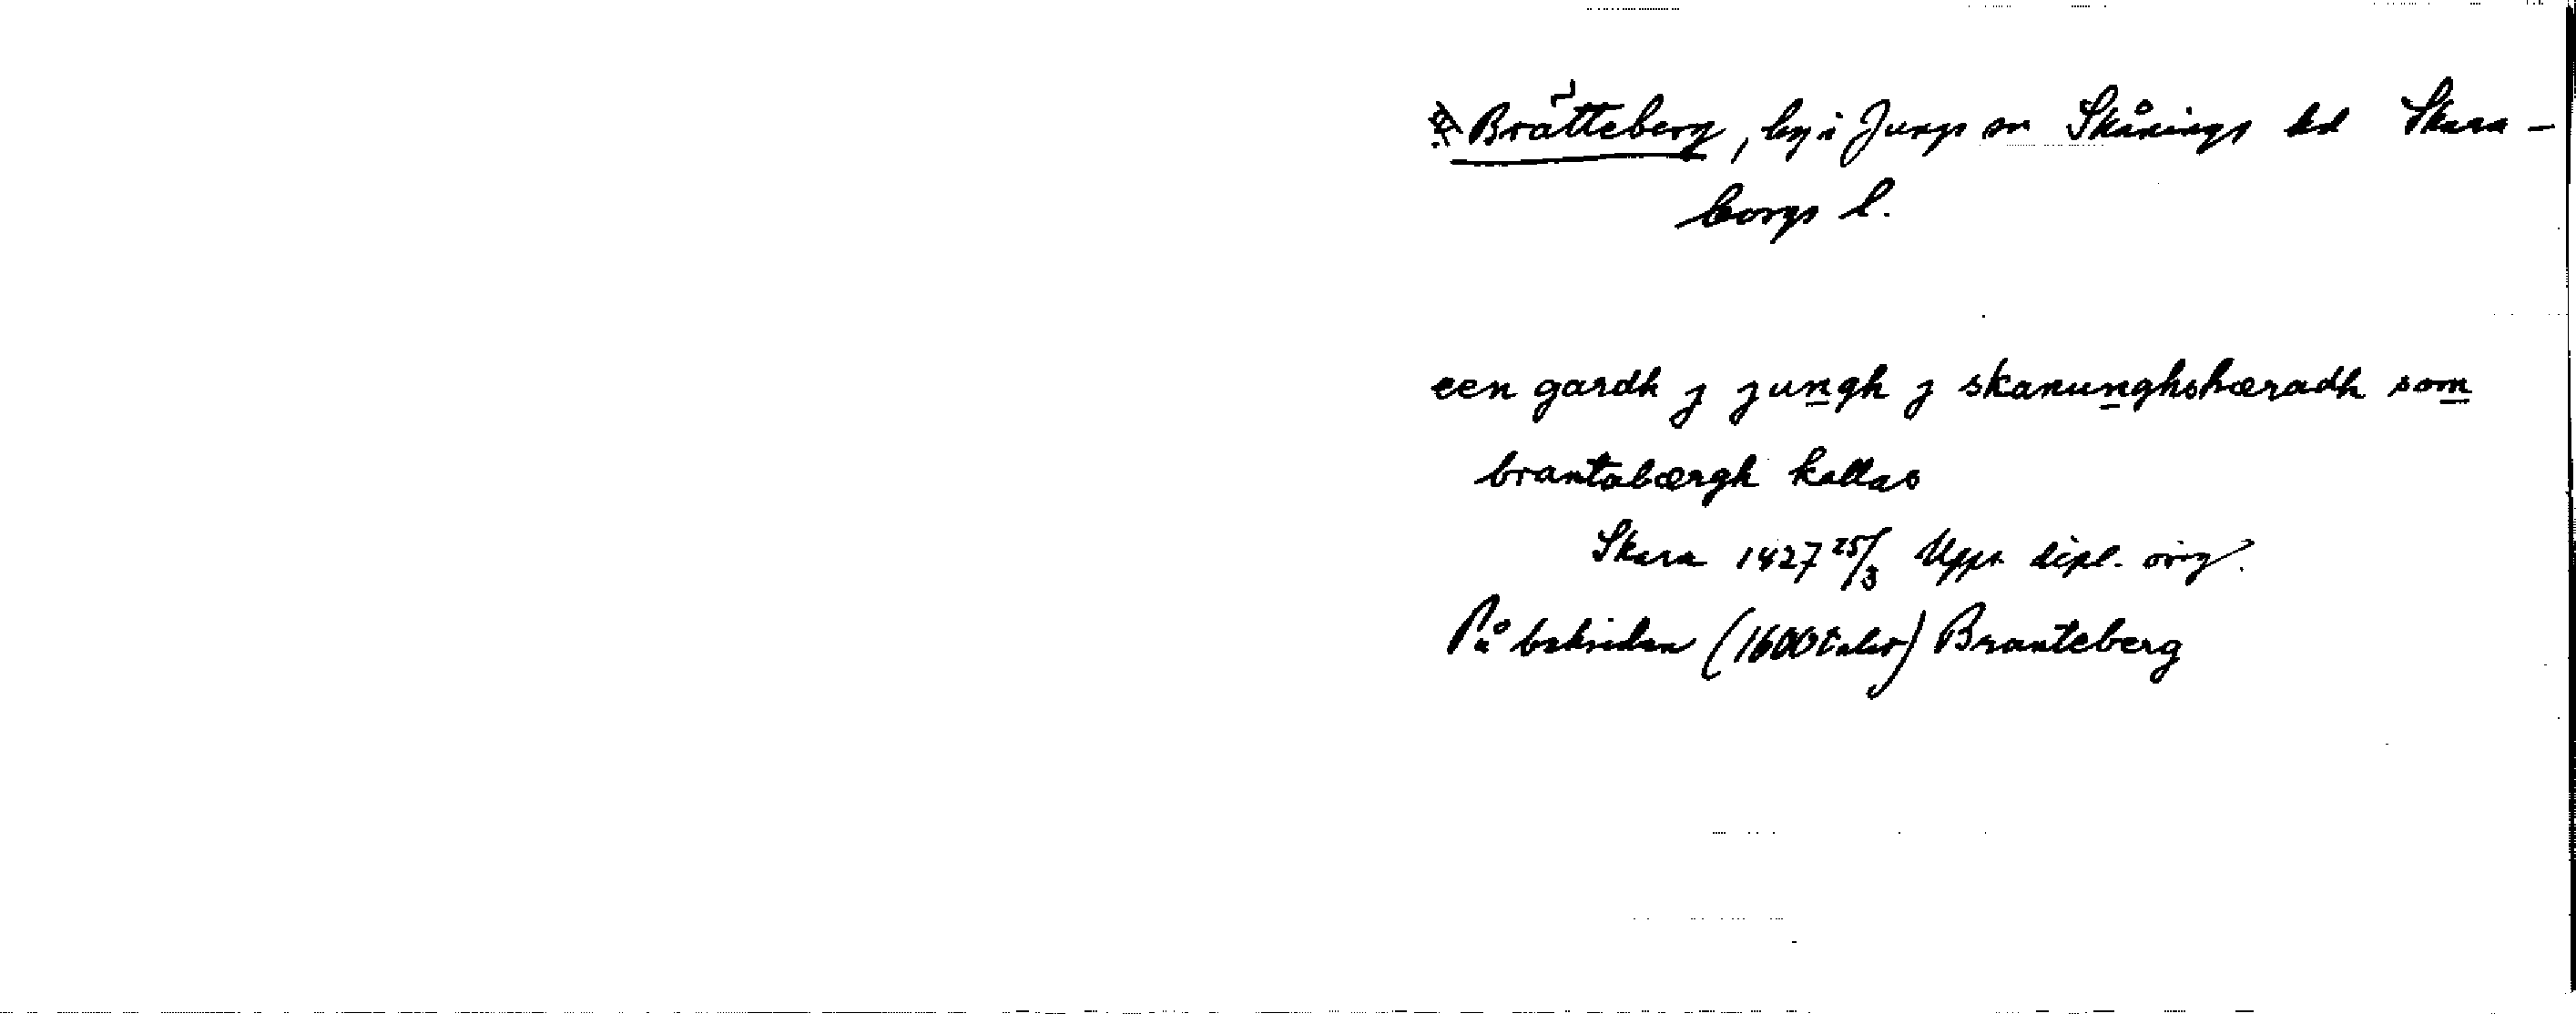 Bratteberg, by i Jungs sn Skånings hd Skara-
borgs l.
een gardh j jungh j skanunghshæradh som
brantabærgh kallas
Skara 1427 25/3 Upps. dipl. orig.
På baksidan (1600talet) Branteberg